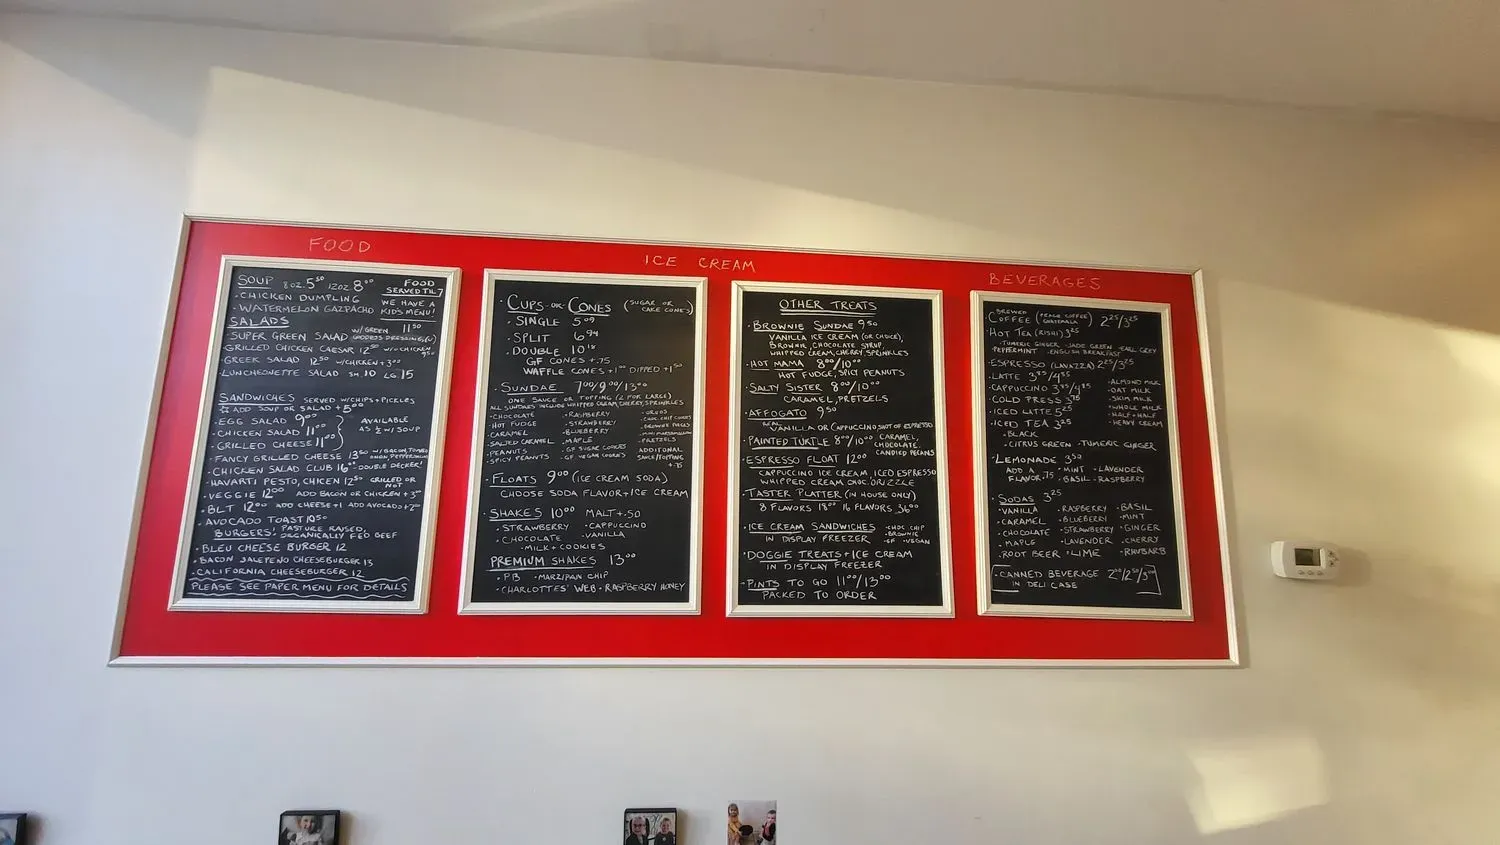 FOOD
SOUP 8 OZ. 5.50 12 OZ. 8.00
FOOD
SERVED TIL 7
• CHICKEN DUMPLING
• WATERMELON GAZPACHO
WE HAVE A
KID'S MENU!
SALADS
• SUPER GREEN SALAD W/GREEN 11.50
• GRILLED CHICKEN CAESAR 12.00
• GREEK SALAD 12.50 W/CHICKEN +3.00
• LUNCHEONETTE SALAD SM. 10 LG. 15
SANDWICHES SERVED W/CHIPS + PICKLES
☆ ADD SOUP OR SALAD +5.00
• EGG SALAD 9.00
• CHICKEN SALAD 11.00
• GRILLED CHEESE 11.00
AVAILABLE
AS ½ W/ SOUP
• FANCY GRILLED CHEESE 13.50
• CHICKEN SALAD CLUB 16.00 DOUBLE DECKER!
• HAVARTI PESTO, CHICEN 12.50 GRILLED OR
NOT
• VEGGIE 12.00 ADD BACON OR CHICKEN +3.00
• BLT 12.00 ADD CHEESE +1 ADD AVOCADO +2.00
• AVOCADO TOAST 10.50
BURGERS! PASTURE RAISED,
ORGANICALLY FED BEEF
• BLEU CHEESE BURGER 12
• BACON JALEPENO CHEESEBURGER 13
• CALIFORNIA CHEESEBURGER 12
PLEASE SEE PAPER MENU FOR DETAILS
ICE CREAM
• CUPS -OR- CONES (SUGAR OR
CAKE CONES)
• SINGLE 5.09
• SPLIT 6.94
• DOUBLE 10.18
GF CONES +.75
WAFFLE CONES +1.00 DIPPED +1.50
• SUNDAE 7.00/9.00/13.00
ONE SAUCE OR TOPPING (2 FOR LARGE)
ALL SUNDAES INCLUDE WHIPPED CREAM, CHERRY, SPRINKLES
• CHOCOLATE
• HOT FUDGE
• CARAMEL
• SALTED CARAMEL
• PEANUTS
• SPICY PEANUTS
• RASPBERRY
• STRAWBERRY
• BLUEBERRY
• MAPLE
• GF SUGAR COOKIES
• GF VEGAN COOKIES
• OREOS
• CHOC CHIP COOKIES
• BROWNIE PIECES
• MINI MARSHMALLOW
• PRETZELS
ADDITIONAL
SAUCE/TOPPING
+.75
• FLOATS 9.00 (ICE CREAM SODA)
CHOOSE SODA FLAVOR + ICE CREAM
• SHAKES 10.00 MALT +.50
• STRAWBERRY • CAPPUCCINO
• CHOCOLATE • VANILLA
• MILK + COOKIES
PREMIUM SHAKES 13.00
• PB • MARZIPAN CHIP
• CHARLOTTES' WEB • RASPBERRY HONEY
OTHER TREATS
• BROWNIE SUNDAE 9.50
VANILLA ICE CREAM (OR CHOICE),
BROWNIE, CHOCOLATE SYRUP,
WHIPPED CREAM, CHERRY, SPRINKLES
• HOT MAMA 8.00/10.00
HOT FUDGE, SPICY PEANUTS
• SALTY SISTER 8.00/10.00
CARAMEL, PRETZELS
• AFFOGATO 9.50
VANILLA OR CAPPUCCINO, SHOT OF ESPRESSO
• PAINTED TURTLE 8.00/10.00 CARAMEL,
CHOCOLATE,
CANDIED PECANS
• ESPRESSO FLOAT 12.00
CAPPUCCINO ICE CREAM, ICED ESPRESSO
WHIPPED CREAM, CHOC. DRIZZLE
• TASTER PLATTER (IN HOUSE ONLY)
8 FLAVORS 18.00 16 FLAVORS 36.00
• ICE CREAM SANDWICHES
IN DISPLAY FREEZER
• CHOC CHIP
• BROWNIE
• GF • VEGAN
• DOGGIE TREATS + ICE CREAM
IN DISPLAY FREEZER
• PINTS TO GO 11.00/13.00
PACKED TO ORDER
BEVERAGES
• BREWED
COFFEE (PEACE COFFEE)
GUATEMALA 2.25/3.25
• HOT TEA (RISHI) 3.25
• TUMERIC GINGER • JADE GREEN • EARL GREY
• PEPPERMINT • ENGLISH BREAKFAST
• ESPRESSO (LAVAZZA) 2.25/3.25
• LATTE 3.95/4.95
• CAPPUCCINO 3.95/4.95
• COLD PRESS 3.75
• ICED LATTE 5.25
• ICED TEA 3.25
• ALMOND MILK
• OAT MILK
• SKIM MILK
• WHOLE MILK
• HALF + HALF
• HEAVY CREAM
• BLACK
• CITRUS GREEN • TUMERIC GINGER
• LEMONADE 3.50
ADD A
FLAVOR .75
• MINT • LAVENDER
• BASIL • RASPBERRY
• SODAS 3.25
• VANILLA • RASPBERRY • BASIL
• CARAMEL • BLUEBERRY • MINT
• CHOCOLATE • STRAWBERRY • GINGER
• MAPLE • LAVENDER • CHERRY
• ROOT BEER • LIME • RHUBARB
• CANNED BEVERAGE 2.00/2.50/3.00
IN DELI CASE